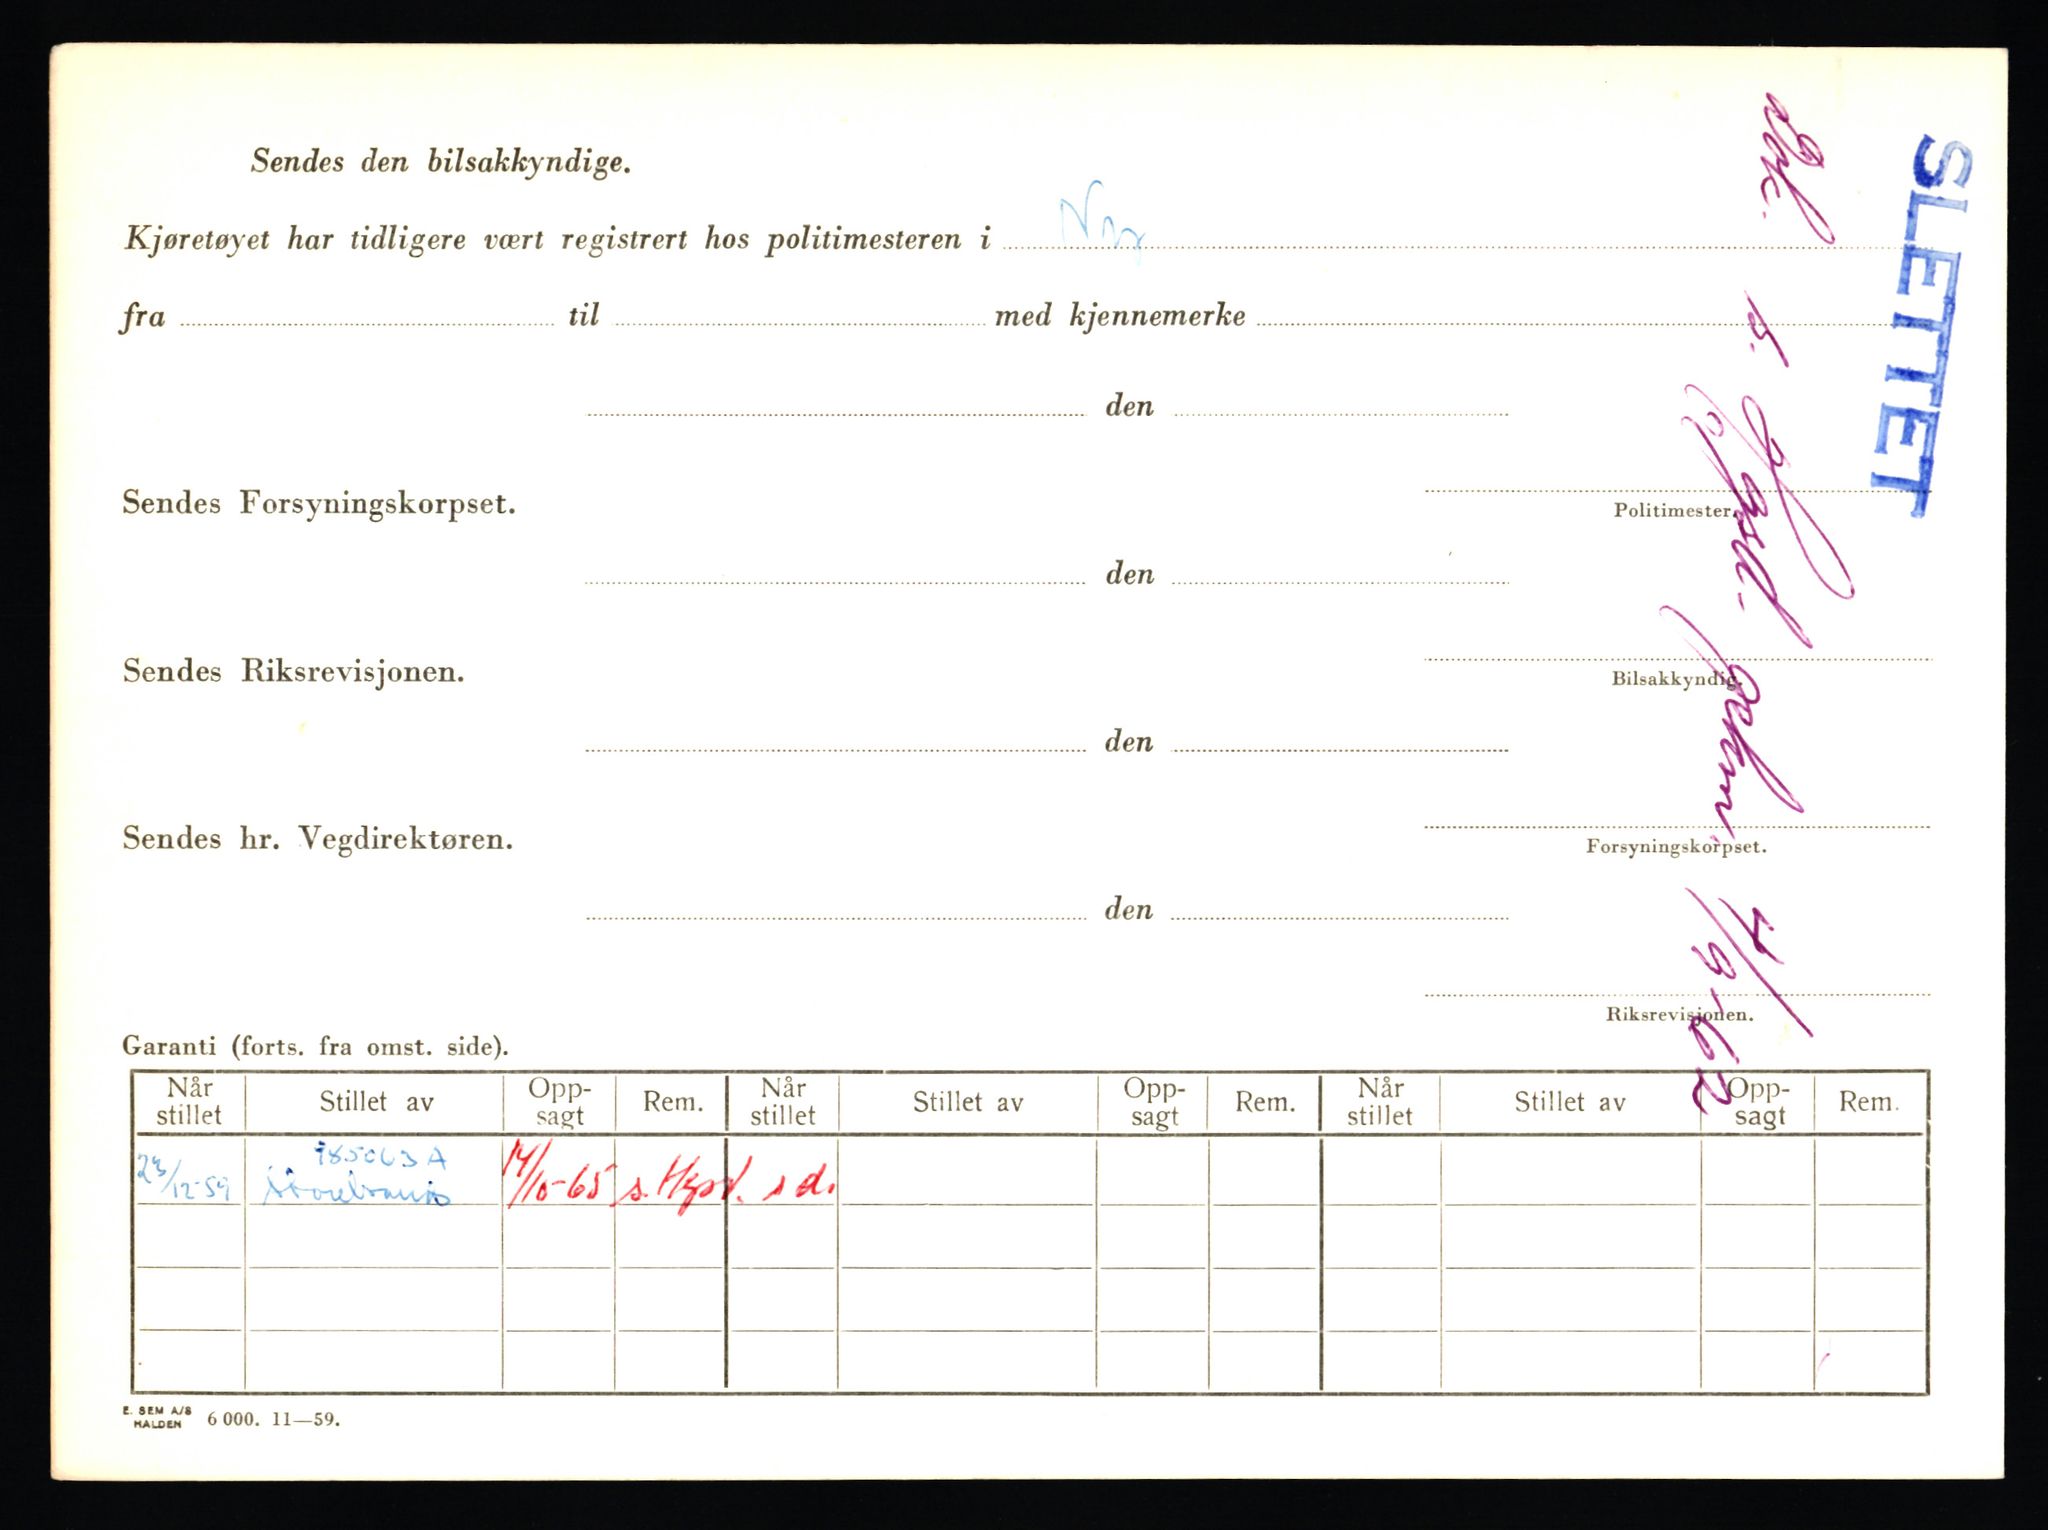 Sendes den bilsakkyndige.
Kjøretøyet har tidligere vært registrert hos politimesteren i Ny
fra til med kjennemerke
den
Sendes Forsyningskorpset.
Politimester.
den
Sendes Riksrevisjonen.
Bilsakkyndig.
den
Sendes hr. Vegdirektøren.
Forsyningskorpset.
den
Riksrevisjonen.
Garanti (forts. fra omst. side).
Når stillet Stillet av Opp-sagt Rem. Når stillet Stillet av Opp-sagt Rem. Når stillet Stillet av Opp-sagt Rem.
785063 A
23/12-59 Storebrand 14/10-65 s.
E. SEM A/S
HALDEN 6 000. 11—59.
SLETTET
4/9-62